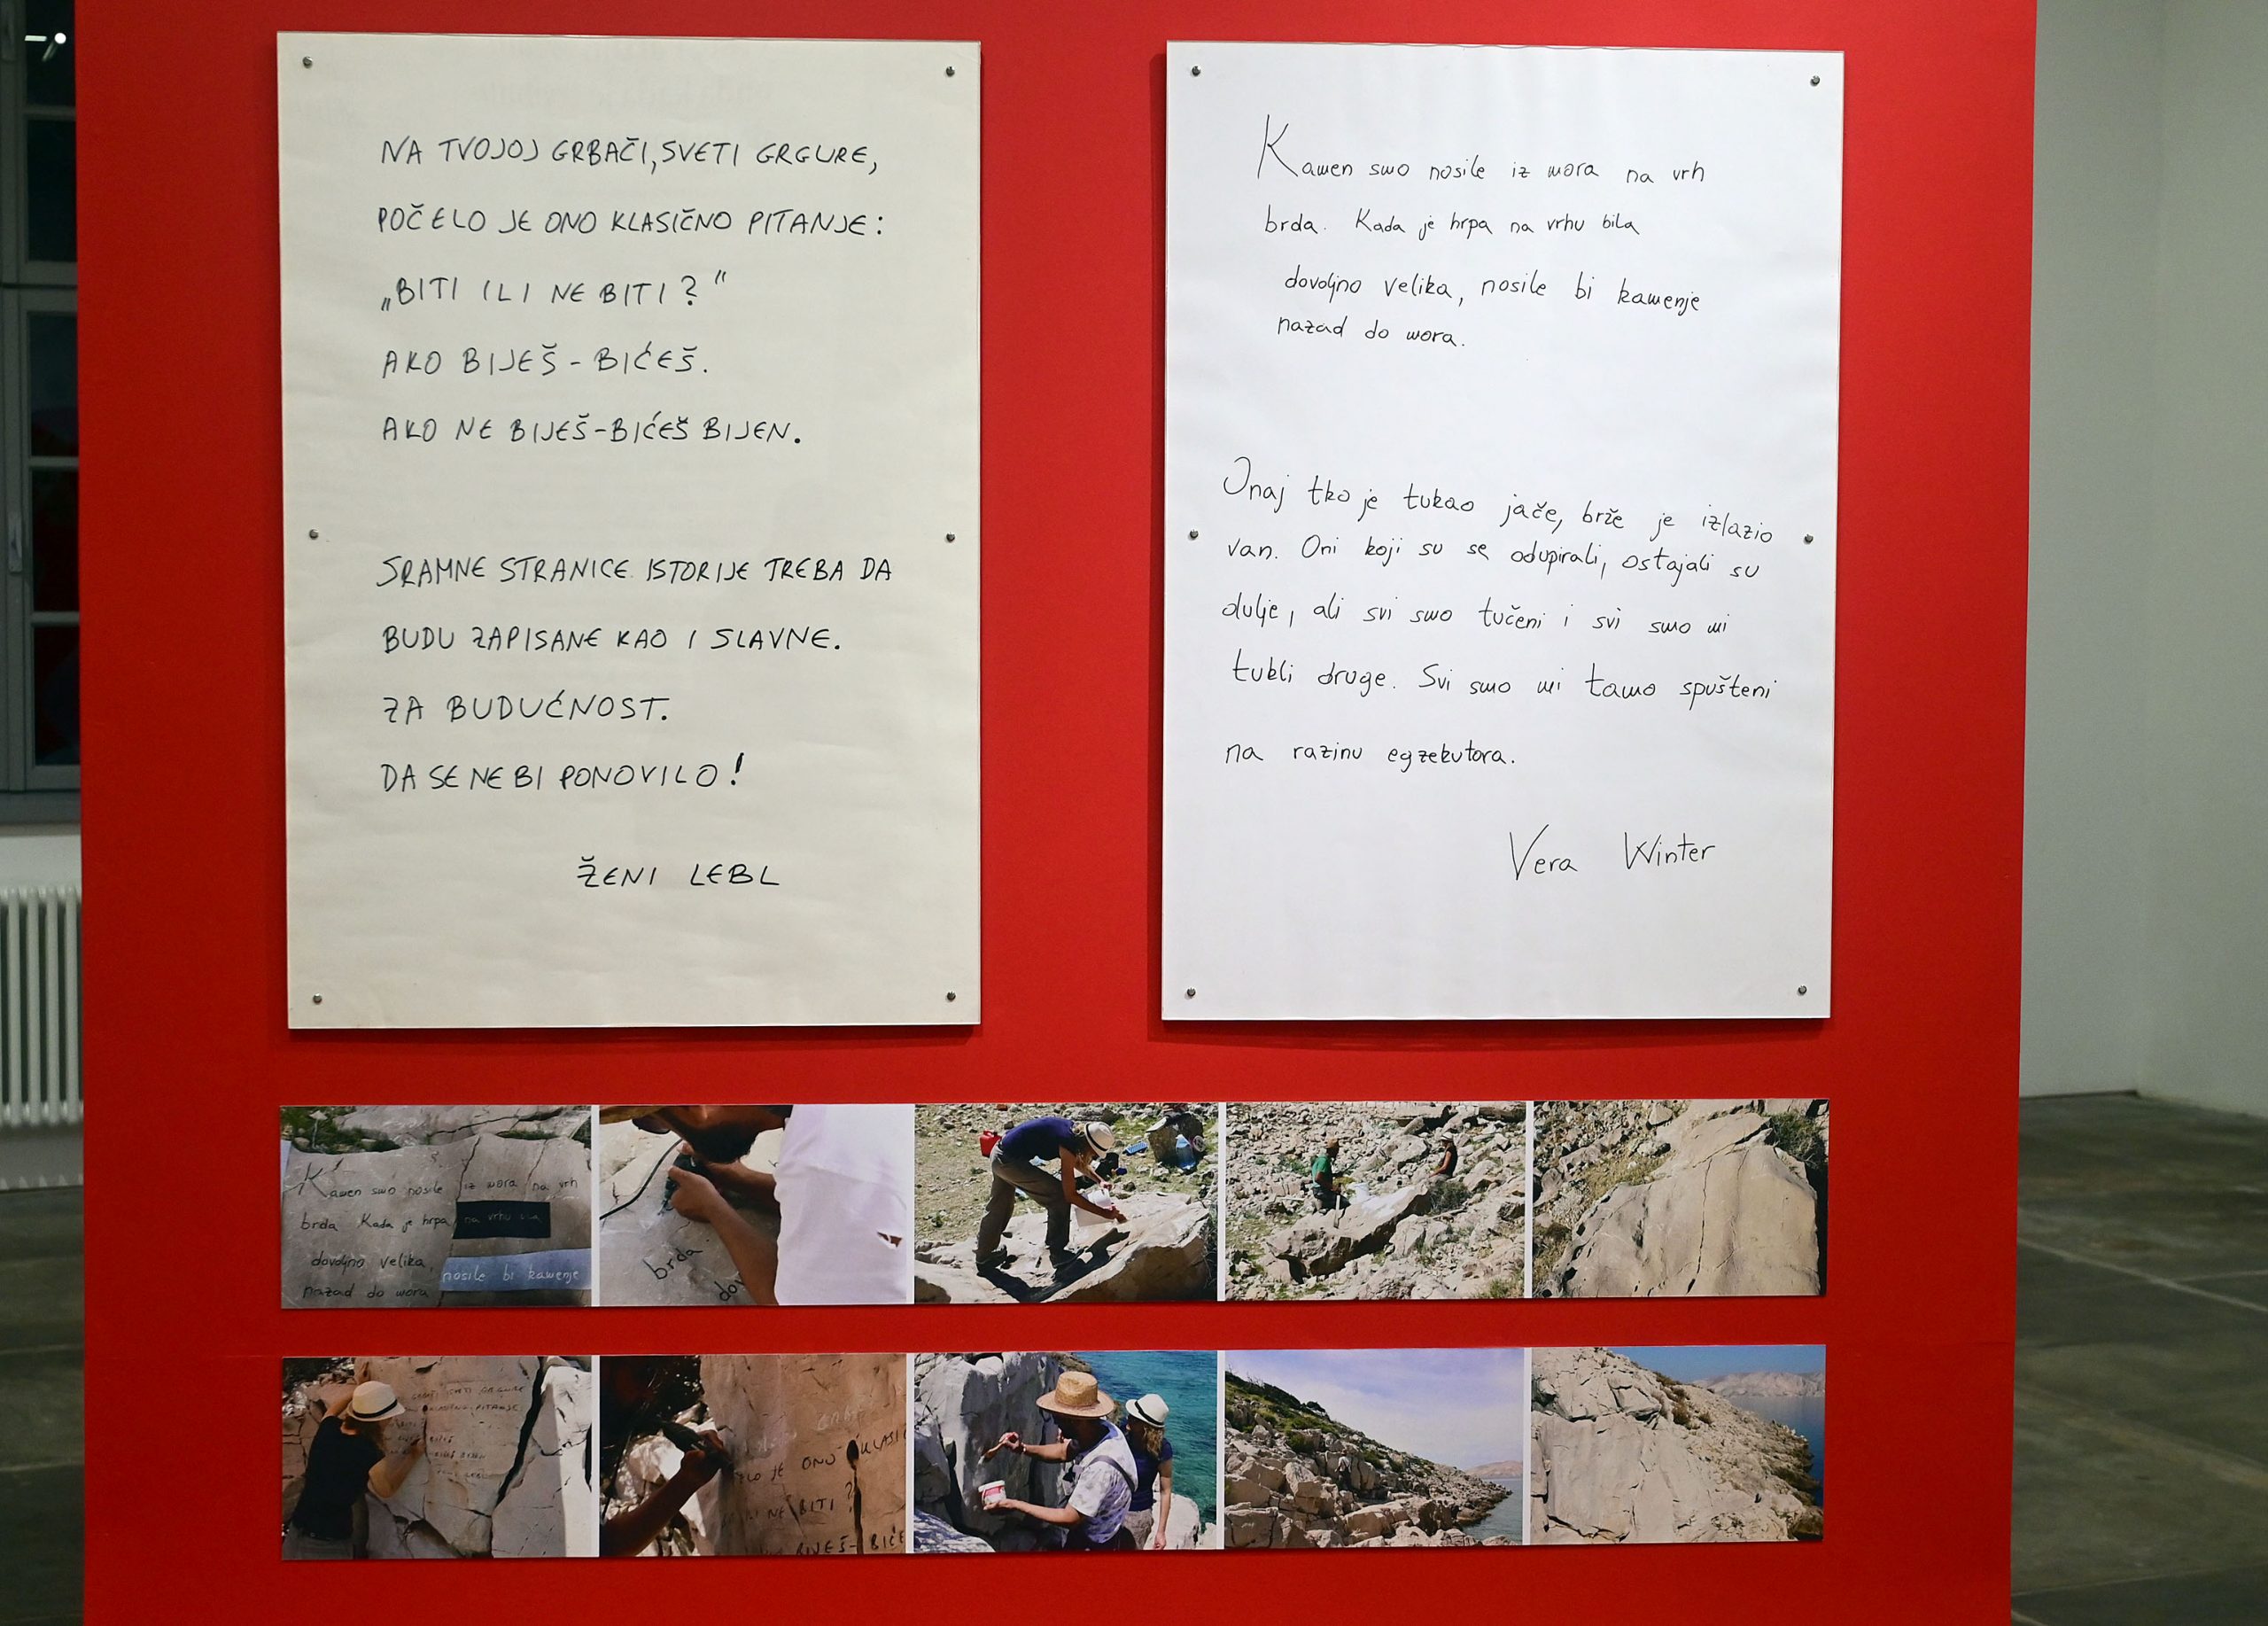 NA TVOJOJ GRBAČI, SVETI GRGURE,
POČELO JE ONO KLASIČNO PITANJE:
„BITI ILI NE BITI?"
AKO BIJEŠ - BIĆEŠ.
AKO NE BIJEŠ - BIĆEŠ BIJEN.
SRAMNE STRANICE ISTORIJE TREBA DA
BUDU ZAPISANE KAO I SLAVNE.
ZA BUDUĆNOST.
DA SE NE BI PONOVILO!
ŽENI LEBL
Kamen smo nosile iz mora na vrh
brda. Kada je hrpa na vrhu bila
dovoljno velika, nosile bi kamenje
nazad do mora.
Onaj tko je tukao jače, brže je izlazio
van. Oni koji su se odupirali, ostajali su
dulje, ali svi smo tučeni i svi smo mi
tukli druge. Svi smo mi tamo spušteni
na razinu egzekutora.
Vera Winter
Kamen smo nosile iz mora na vrh
brda Kada je hrpa na vrhu
dovoljno velika, nosile bi kamenje
nazad do mora
brda
dov
JE ONO KLASIČ
NE BITI?
BIJEŠ - BIĆE